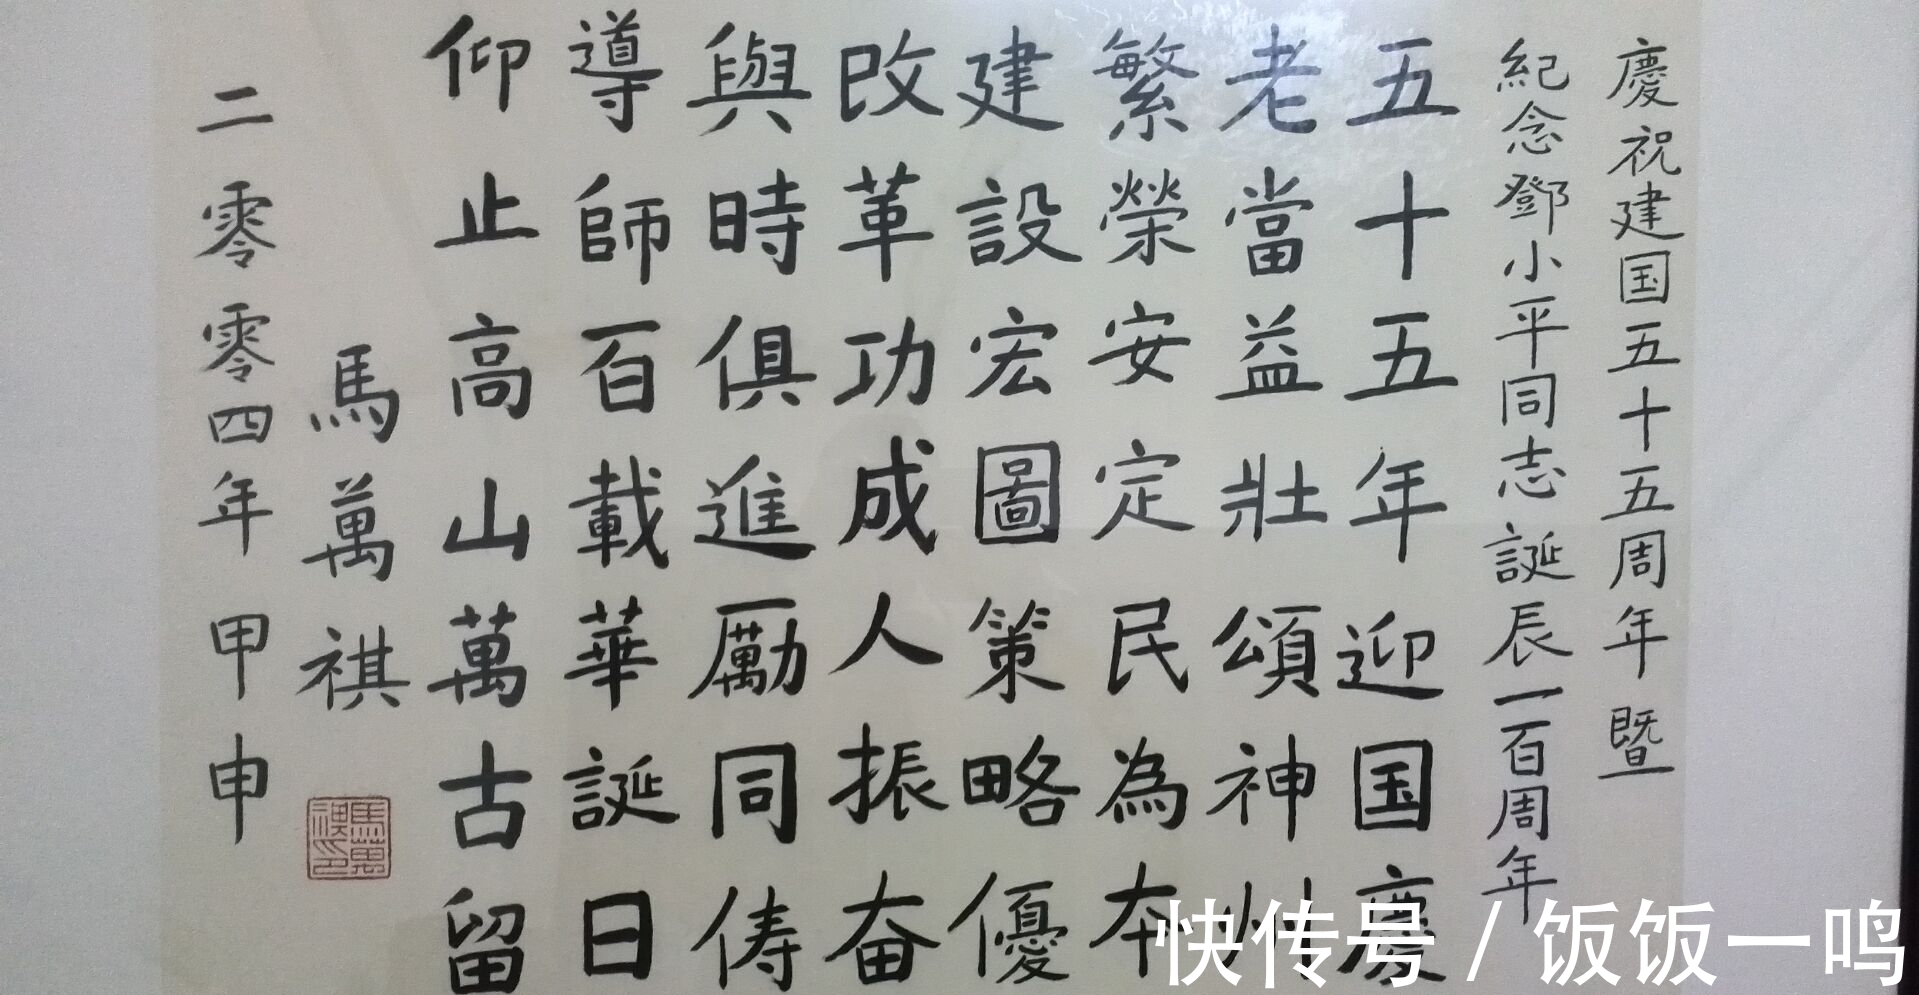 慶祝建国五十五周年暨
紀念鄧小平同志誕辰一百周年
五十五年迎国慶
老當益壯頌神州
繁榮安定民為本
建設宏圖策略優
改革功成人振奋
與時俱進勵同俦
導師百載華誕日
仰止高山萬古留
馬萬祺
馬萬祺印
二零零四年甲申
快传号/饭饭一鸣